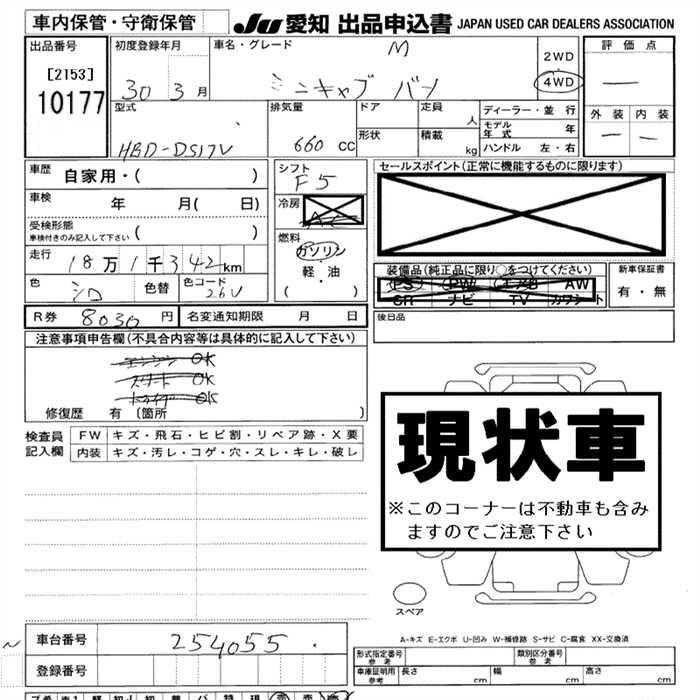 車内保管・守衛保管
JU 愛知 出品申込書 JAPAN USED CAR DEALERS ASSOCIATION
出品番号
[2153]
10177
初度登録年月
30 3月
車名・グレード M
ミニキャブ バン
2WD
4WD
評価点
—
外装 内装
— —
型式
HBD-DS17V
排気量
660 cc
ドア
形状
定員 人
積載 kg
ディーラー・並行
モデル年式 年
ハンドル 左・右
車歴 自家用・( )
車検 年 月( 日)
受検形態
車検付きのみ記入して下さい ( )
走行 18万1千342km
色 シロ 色替
色コード 26U
シフト
F5
冷房
AC
燃料
ガソリン
軽・油
( )
セールスポイント(正常に機能するものに限ります)
装備品(純正品に限り○をつけてください)
PS PW エアB AW
SR ナビ TV カワシート
新車保証書
有・無
R券 8030円 名変通知期限 月 日
後日品
注意事項申告欄(不具合内容等は具体的に記入して下さい)
エンジン OK
スタート OK
OK
修復歴 有(箇所
検査員
記入欄
FW キズ・飛石・ヒビ割・リペア跡・X要
内装 キズ・汚レ・コゲ・穴・スレ・キレ・破レ
現状車
※このコーナーは不動車も含み
ますのでご注意下さい
スペア
A-キズ E-エクボ U-凹ミ W-補修跡 S-サビ C-腐食 XX-交換済
〜 車台番号 254055
登録番号
型式指定番号
参考
類別区分番号
参考
車庫証明用
参考
長さ cm 幅 cm 高さ cm